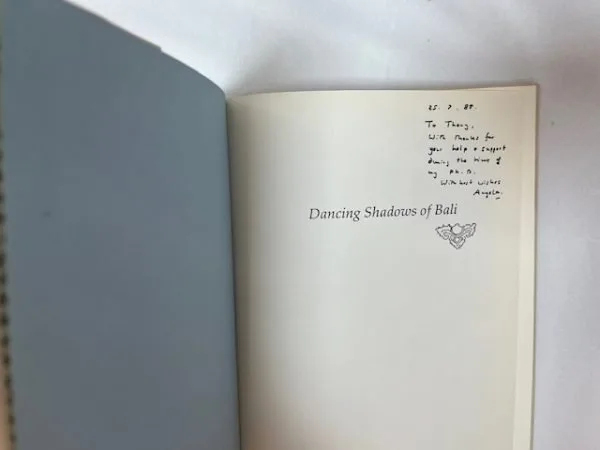 25. 7. 88.
To Thany,
With thanks for
your help & support
during the time of
my Ph. D.
With best wishes
Angela.
Dancing Shadows of Bali